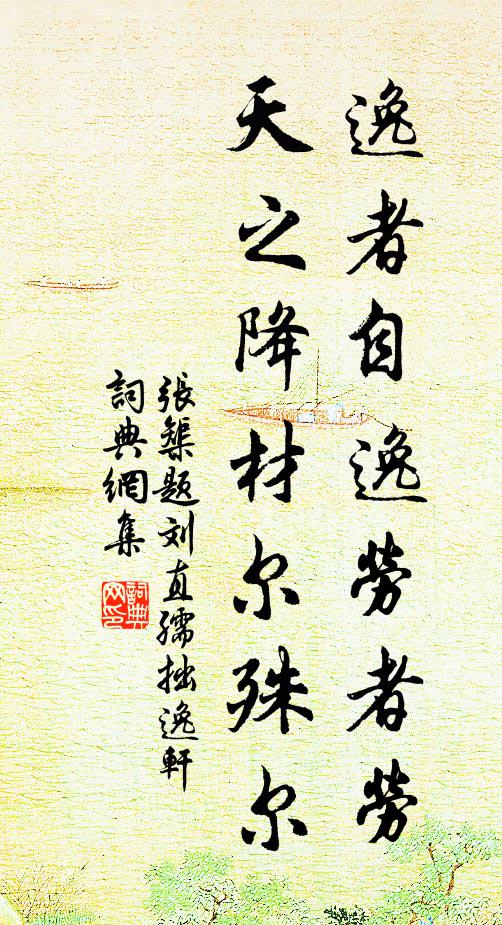 逸者自逸勞者勞
天之降材尔殊尔
張榘題刘直孺拙逸軒
詞典網集
詞典网印